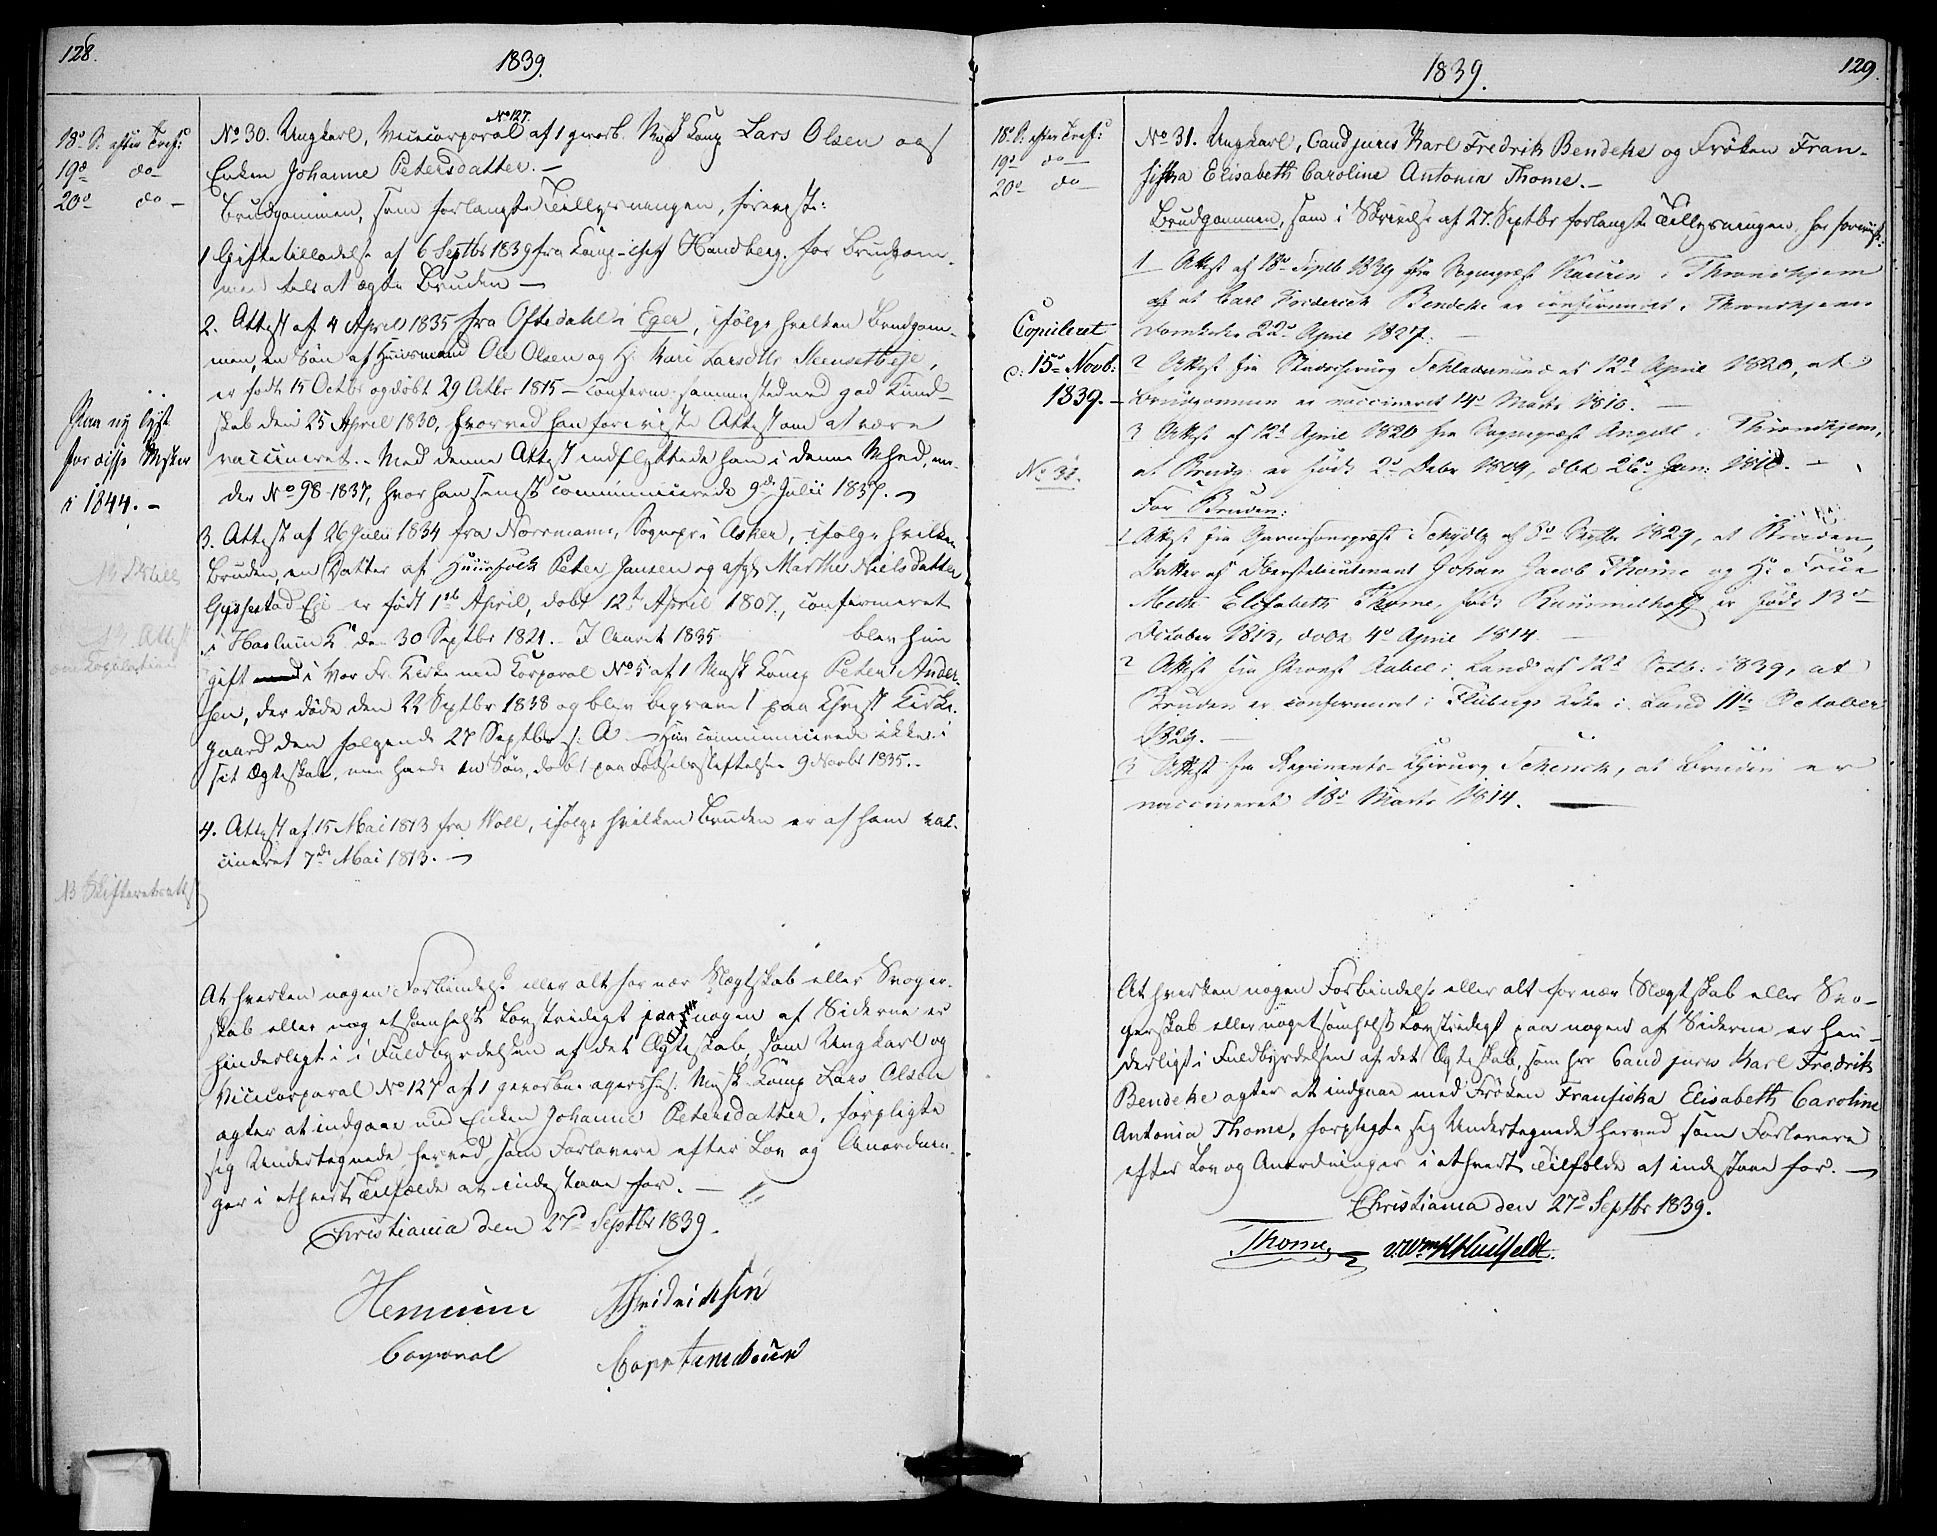 128.
1839.
18d S. efter Tref:
19d do
20d do
No 30. Ungkarl, Vicecorporal No 127. af 1 gevorb. Musk Comp Lars Olsen og
Enken Johanne Petersdatter. —
Brudgommen, som forlangte Tillysningen, foreviste:
1 Giftetilladelse af 6 Septbr 1839 fra Comp-chef Handberg, for Brudgom-
men til at ægte Bruden —
2. Attest af 4 April 1835 fra Oftedahl i Eger, ifølge hvilken Brudgom-
men, en Søn af Huusmand Ole Olsen og H: Kari Larsdttr Steensetheje,
er født 15 Octbr og døbt 29 Octbr 1815 — Conferm: sammesteds med god Kund-
skab den 25 April 1830, hvorved han foreviste Attest om at være
vaccineret. — Med denne Attest indflyttede han i denne Mhed, un-
der No 98-1837, hvor han senest communicerede 9de Julii 1837. —
Paa ny lyst
for disse Msker
i 1844. —
3. Attest af 26 Julii 1834 fra Norrmann, Sognepr i Asker, ifølge hvilken
Bruden, en Datter af Huusfolk Peter Jansen og afg: Marthe Nielsdatter
Gyssestad Eje er født 1ste April, døbt 12te April 1807, confermeret
i Haslum K. den 30 Septbr 1821. — I Aaret 1835 blev hun
gift i Vor Fr. Kirke med Corporal No 5 af 1 Musk Comp Peter Ander-
sen, der døde den 22 Septbr 1838 og blev begravet paa Christ Kirke-
gaard den følgende 27 Septbr s: A — Hun communicerede ikke i
sit Ægteskab, men havde en Søn, døbt paa Fødselsstiftelsen 9 Novbr 1835. —
NB Attest
om Copulation
4. Attest af 15 Mai 1813 fra Woll, ifølge hvilken Bruden er af ham vac-
cineret 7de Mai 1813. —
NB Skifteretsattest
At hverken nogen Forbindelse eller alt for nær Slægtskab eller Svoger-
skab eller noget somhelst Lovstridigt paa nogen af Siderne er
hinderligt i i Fuldbyrdelsen af det Ægteskab, som Ungkarl og
Vicecorporal No 127 af 1 gevorbne agershus: Musk Comp Lars Olsen
agter at indgaae med Enken Johanne Petersdatter, forpligte
sig Undertegnede herved som Forlovere efter Lov og Anordnin-
ger i ethvert Tilfælde at indestaae for. —
Christiania den 27d Septbr 1839.
Corporal
129.
1839.
18d S. efter Tref:
19d do
20d do
No 31. Ungkarl, Cand juris Karl Fredrik Bendeke og Frøken Fran-
siska Elisabeth Caroline Antonia Thome. —
Brudgommen, som i Skrivelse af 27. Septbr forlangte Tillysningen, har foreviist:
1 Attest af 18d Septb 1839 fra Sognepræst i Throndhjem
at Carl Friderich Bendeke er confirmeret i Throndhjems
Domkirke 22d April 1827. —
Copuleret
d: 15d Novb:
1839. —
2 Attest fra af 12d April 1820, at
Brudgommen er vaccineret 14d Marts 1810. —
3 Attest af 12d April 1820 fra Sognepræst Angell i Throndhjem,
at Brudg: er født 2d Debr 1809, døbt 26d Jan: 1810. —
No 31.
For Bruden:
1 Attest fra Garnisonspræst Schydtz af Septbr 1829, at Bruden,
Datter af Oberstlieutenant Johan Jacob Thome og H: Frue
Mette Elisabeth Thome, født Rummelhoff er født 13d
October 1813, døbt 4d April 1814. —
2 Attest fra Provst Aabel i Land af 12d Septb: 1839, at
Bruden er confirmeret i Fluberg Kirke i Land 11te October
1829. —
3 Attest fra Regiments-Chirurg Schenck, at Bruden er
vaccineret 18d Marts 1814. —
At hverken nogen Forbindelse eller alt for nær Slægtskab eller Svo-
gerskab eller noget somhelst Lovstridigt paa nogen af Siderne er hin-
derligt i Fuldbyrdelsen af det Ægteskab, som Hr Cand juris Karl Fredrik
Bendeke agter at indgaae med Frøken Fransiska Elisabeth Caroline
Antonia Thome, forpligte sig Undertegnede herved som Forlovere
efter Lov og Anordninger i ethvert Tilfælde at indestaae for. —
Christiania den 27d Septbr 1839.
Thome